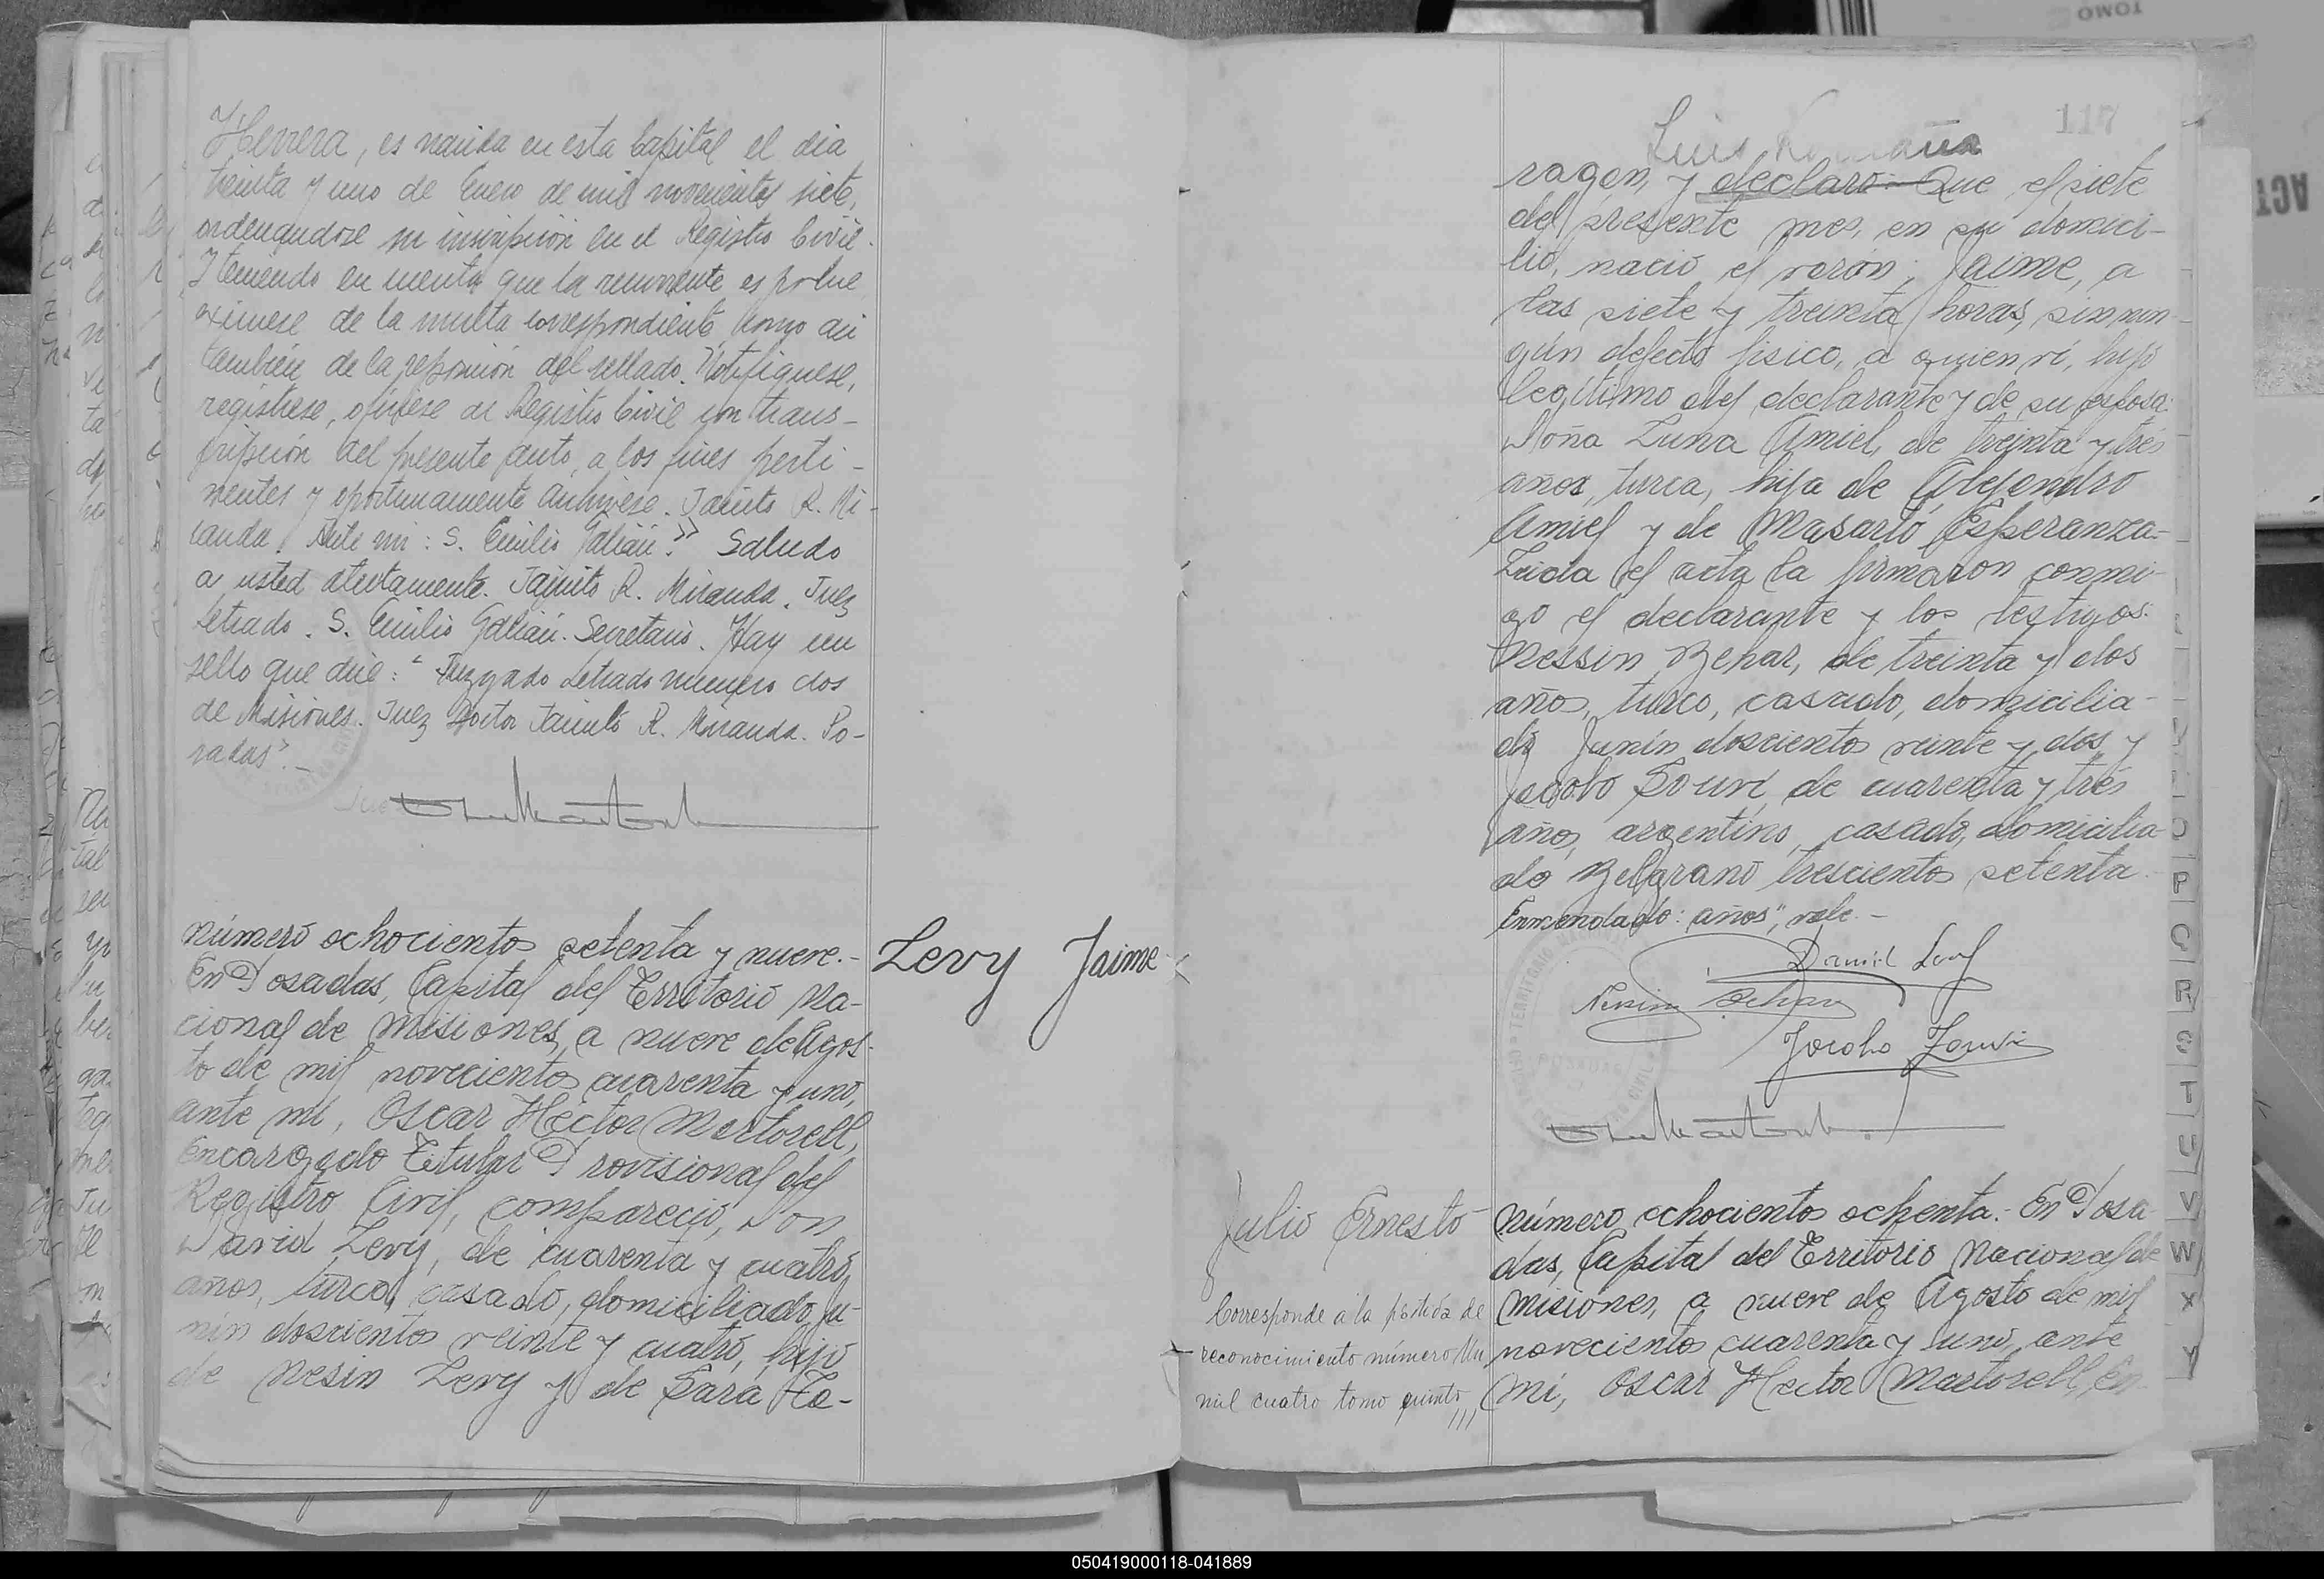 Herrera, es nacida en esta Capital el dia
treinta y uno de Enero de mil novecientos siete,
ordenandose su inscripción en el Registro Civil.
Y teniendo en cuenta que la recurrente es pobre
eximese de la multa correspondiente, como asi
tambien de la reposición del sellado. Notifiquese,
registrese, oficiese al Registro Civil con trans-
cripción del presente auto, a los fines perti-
nentes y oportunamente archivese. Jacinto R. Mi-
randa. Ante mi: S. Emilio Galián." Saludo
a usted atentamente. Jacinto R. Miranda. Juez
Letrado. S. Emilio Galián. Secretario. Hay un
sello que dice: "Juzgado Letrado número dos
de Misiones. Juez Doctor Jacinto R. Miranda. Po-
sadas".-
número ochocientos setenta y nueve.-
En Posadas, Capital del Territorio Na-
cional de Misiones, a nueve de Agos-
to de mil novecientos cuarenta y uno,
ante mi, Oscar Héctor Martorell,
Encargado Titular Provisional del
Registro Civil, compareció, Don
David Levy, de cuarenta y cuatro
años, turco, casado, domiciliado Ju-
nin doscientos veinte y cuatro, hijo
de Nesin Levy y de Sara Za-
Levy Jaime
117
Luis
ragon, y declaro: Que el siete
del presente mes, en su domici-
lio, nació el varón; Jaime, a
las siete y treinta horas, sin nin-
gún defecto fisico, a quien ví, hijo
legítimo del declarante y de su esposa:
Doña Luna Amiel, de treinta y tres
años, turca, hija de Alejandro
Amiel y de Masartó Esperanza.-
Leida el acta la firmaron conmi-
go el declarante y los testigos:
Nessin Behar, de treinta y dos
años, turco, casado, domicilia-
do Junin doscientos veinte y dos, y
Jacobo de cuarenta y tres
años, argentino, casado, domicilia-
do Belgrano trescientos setenta.
Enmendado: años", vale.-
Jacobo
Julio Ernesto
Corresponde a la partida de
reconocimiento número Un
mil cuatro tomo quinto
número ochocientos ochenta.- En Posa-
das, Capital del Territorio Nacional de
Misiones, a nueve de Agosto de mil
novecientos cuarenta y uno, ante
mi, Oscar Hector Martorell, En-
P
Q
R
S
T
U
V
W
X
Y
TOMO
050419000118-041889